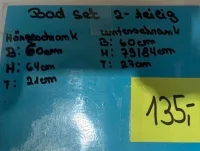 Bad set 2-teilig
Hängeschrank
B: 60cm
H: 64cm
T: 21cm
Unterschrank
B: 60cm
H: 79/84cm
T: 27cm
135,-